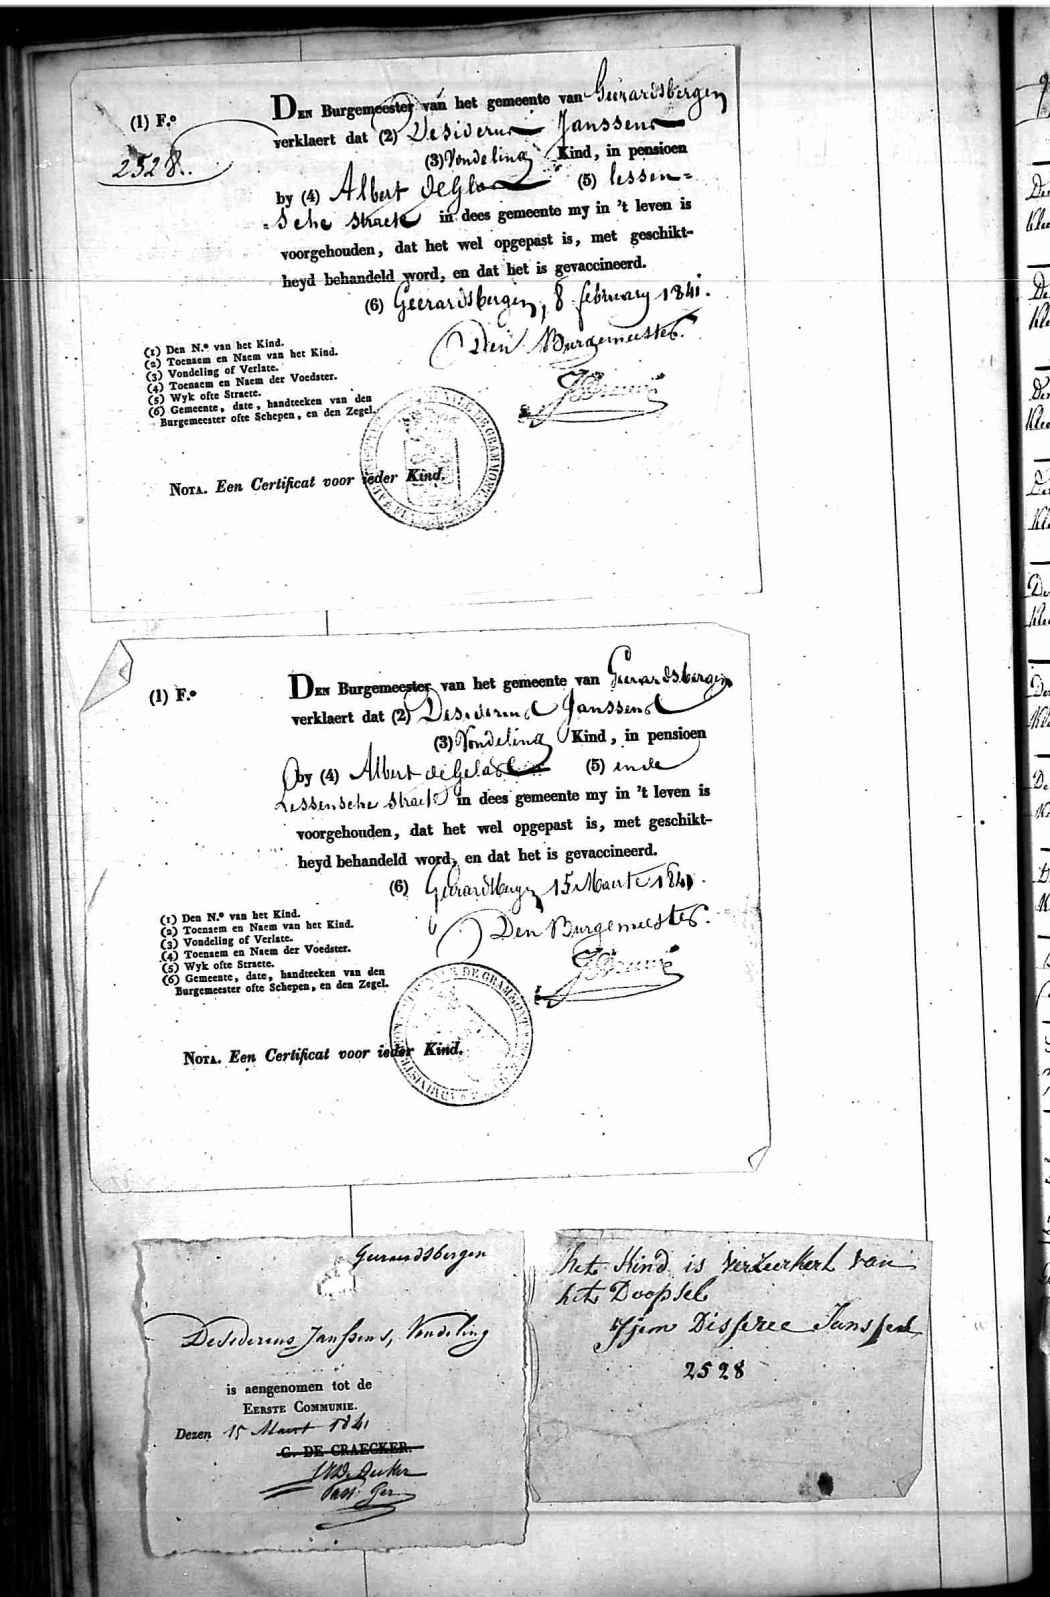 (1) F.º
2528.
DEN Burgemeester van het gemeente van Geerardsbergen
verklaert dat (2) Desiderius Janssens
(3) Vondeling Kind, in pensioen
by (4) Albert de (5) lessen=
=sche straete in dees gemeente my in 't leven is
voorgehouden, dat het wel opgepast is, met geschikt-
heyd behandeld word, en dat het is gevaccineerd.
(6) Geerardsbergen, 8 february 1841.
Den Burgemeester.
(1) Den N.º van het Kind.
(2) Toenaem en Naem van het Kind.
(3) Vondeling of Verlate.
(4) Toenaem en Naem der Voedster.
(5) Wyk ofte Straete.
(6) Gemeente, date, handteeken van den
Burgemeester ofte Schepen, en den Zegel.
NOTA. Een Certificat voor ieder Kind.
(1) F.º
DEN Burgemeester van het gemeente van Geerardsbergen
verklaert dat (2) Desiderius Janssens
(3) Vondeling Kind, in pensioen
by (4) Albert de (5) in de
Lessensche straete in dees gemeente my in 't leven is
voorgehouden, dat het wel opgepast is, met geschikt-
heyd behandeld word, en dat het is gevaccineerd.
(6) Geerardsbergen 15 Maerte 1841.
Den Burgemeester.
(1) Den N.º van het Kind.
(2) Toenaem en Naem van het Kind.
(3) Vondeling of Verlate.
(4) Toenaem en Naem der Voedster.
(5) Wyk ofte Straete.
(6) Gemeente, date, handteeken van den
Burgemeester ofte Schepen, en den Zegel.
DE GRAMMONT
NOTA. Een Certificat voor ieder Kind.
Geeraerdsbergen
Desiderius Janssens, Vondeling
is aengenomen tot de
EERSTE COMMUNIE.
Dezen 15 Maert 1841
C. DE CRAECKER.
het Kind is verzeerkert van
het Doopsel
Disseree Janssens
2528